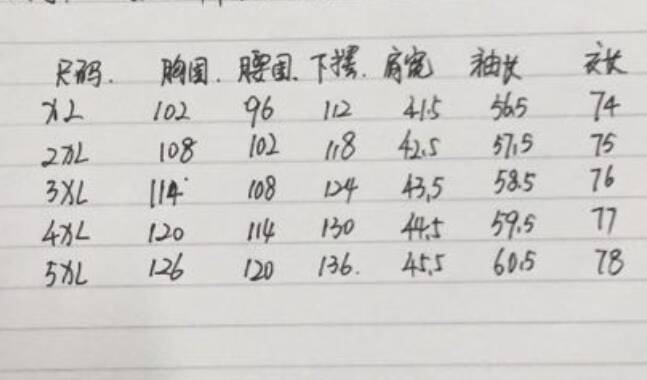 尺码. 胸围. 腰围. 下摆. 肩宽 袖长 衣长
XL 102 96 112 41.5 56.5 74
2XL 108 102 118 42.5 57.5 75
3XL 114 108 124 43.5 58.5 76
4XL 120 114 130 44.5 59.5 77
5XL 126 120 136. 45.5 60.5 78